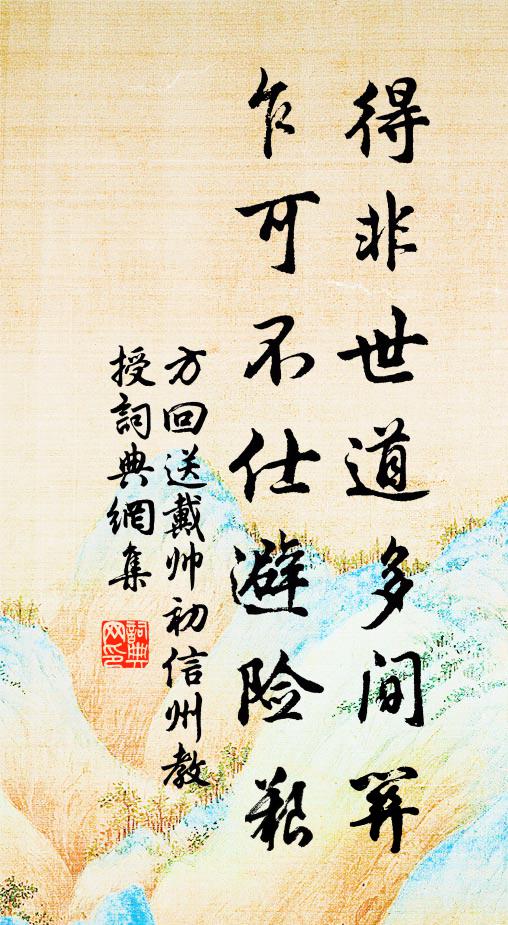 得非世道多间关
乍可不仕避险艰
方回送戴帅初信州教
授詞典網集
詞典网印